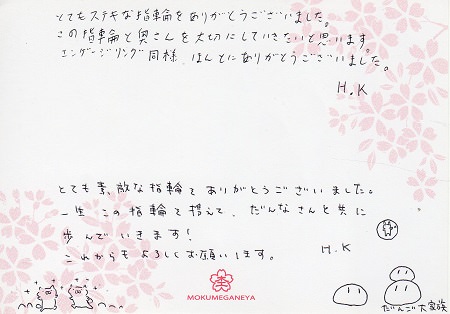 とてもステキな指輪をありがとうございました。
この指輪と奥さんを大切にしていきたいと思います。
エンゲージリング同様、ほんとにありがとうございました。
H.K
とても素敵な指輪をありがとうございました。
一生この指輪を携えて、だんなさんと共に
歩んでいきます!
これからもよろしくお願いします。
H.K
MOKUMEGANEYA
だんご大家族